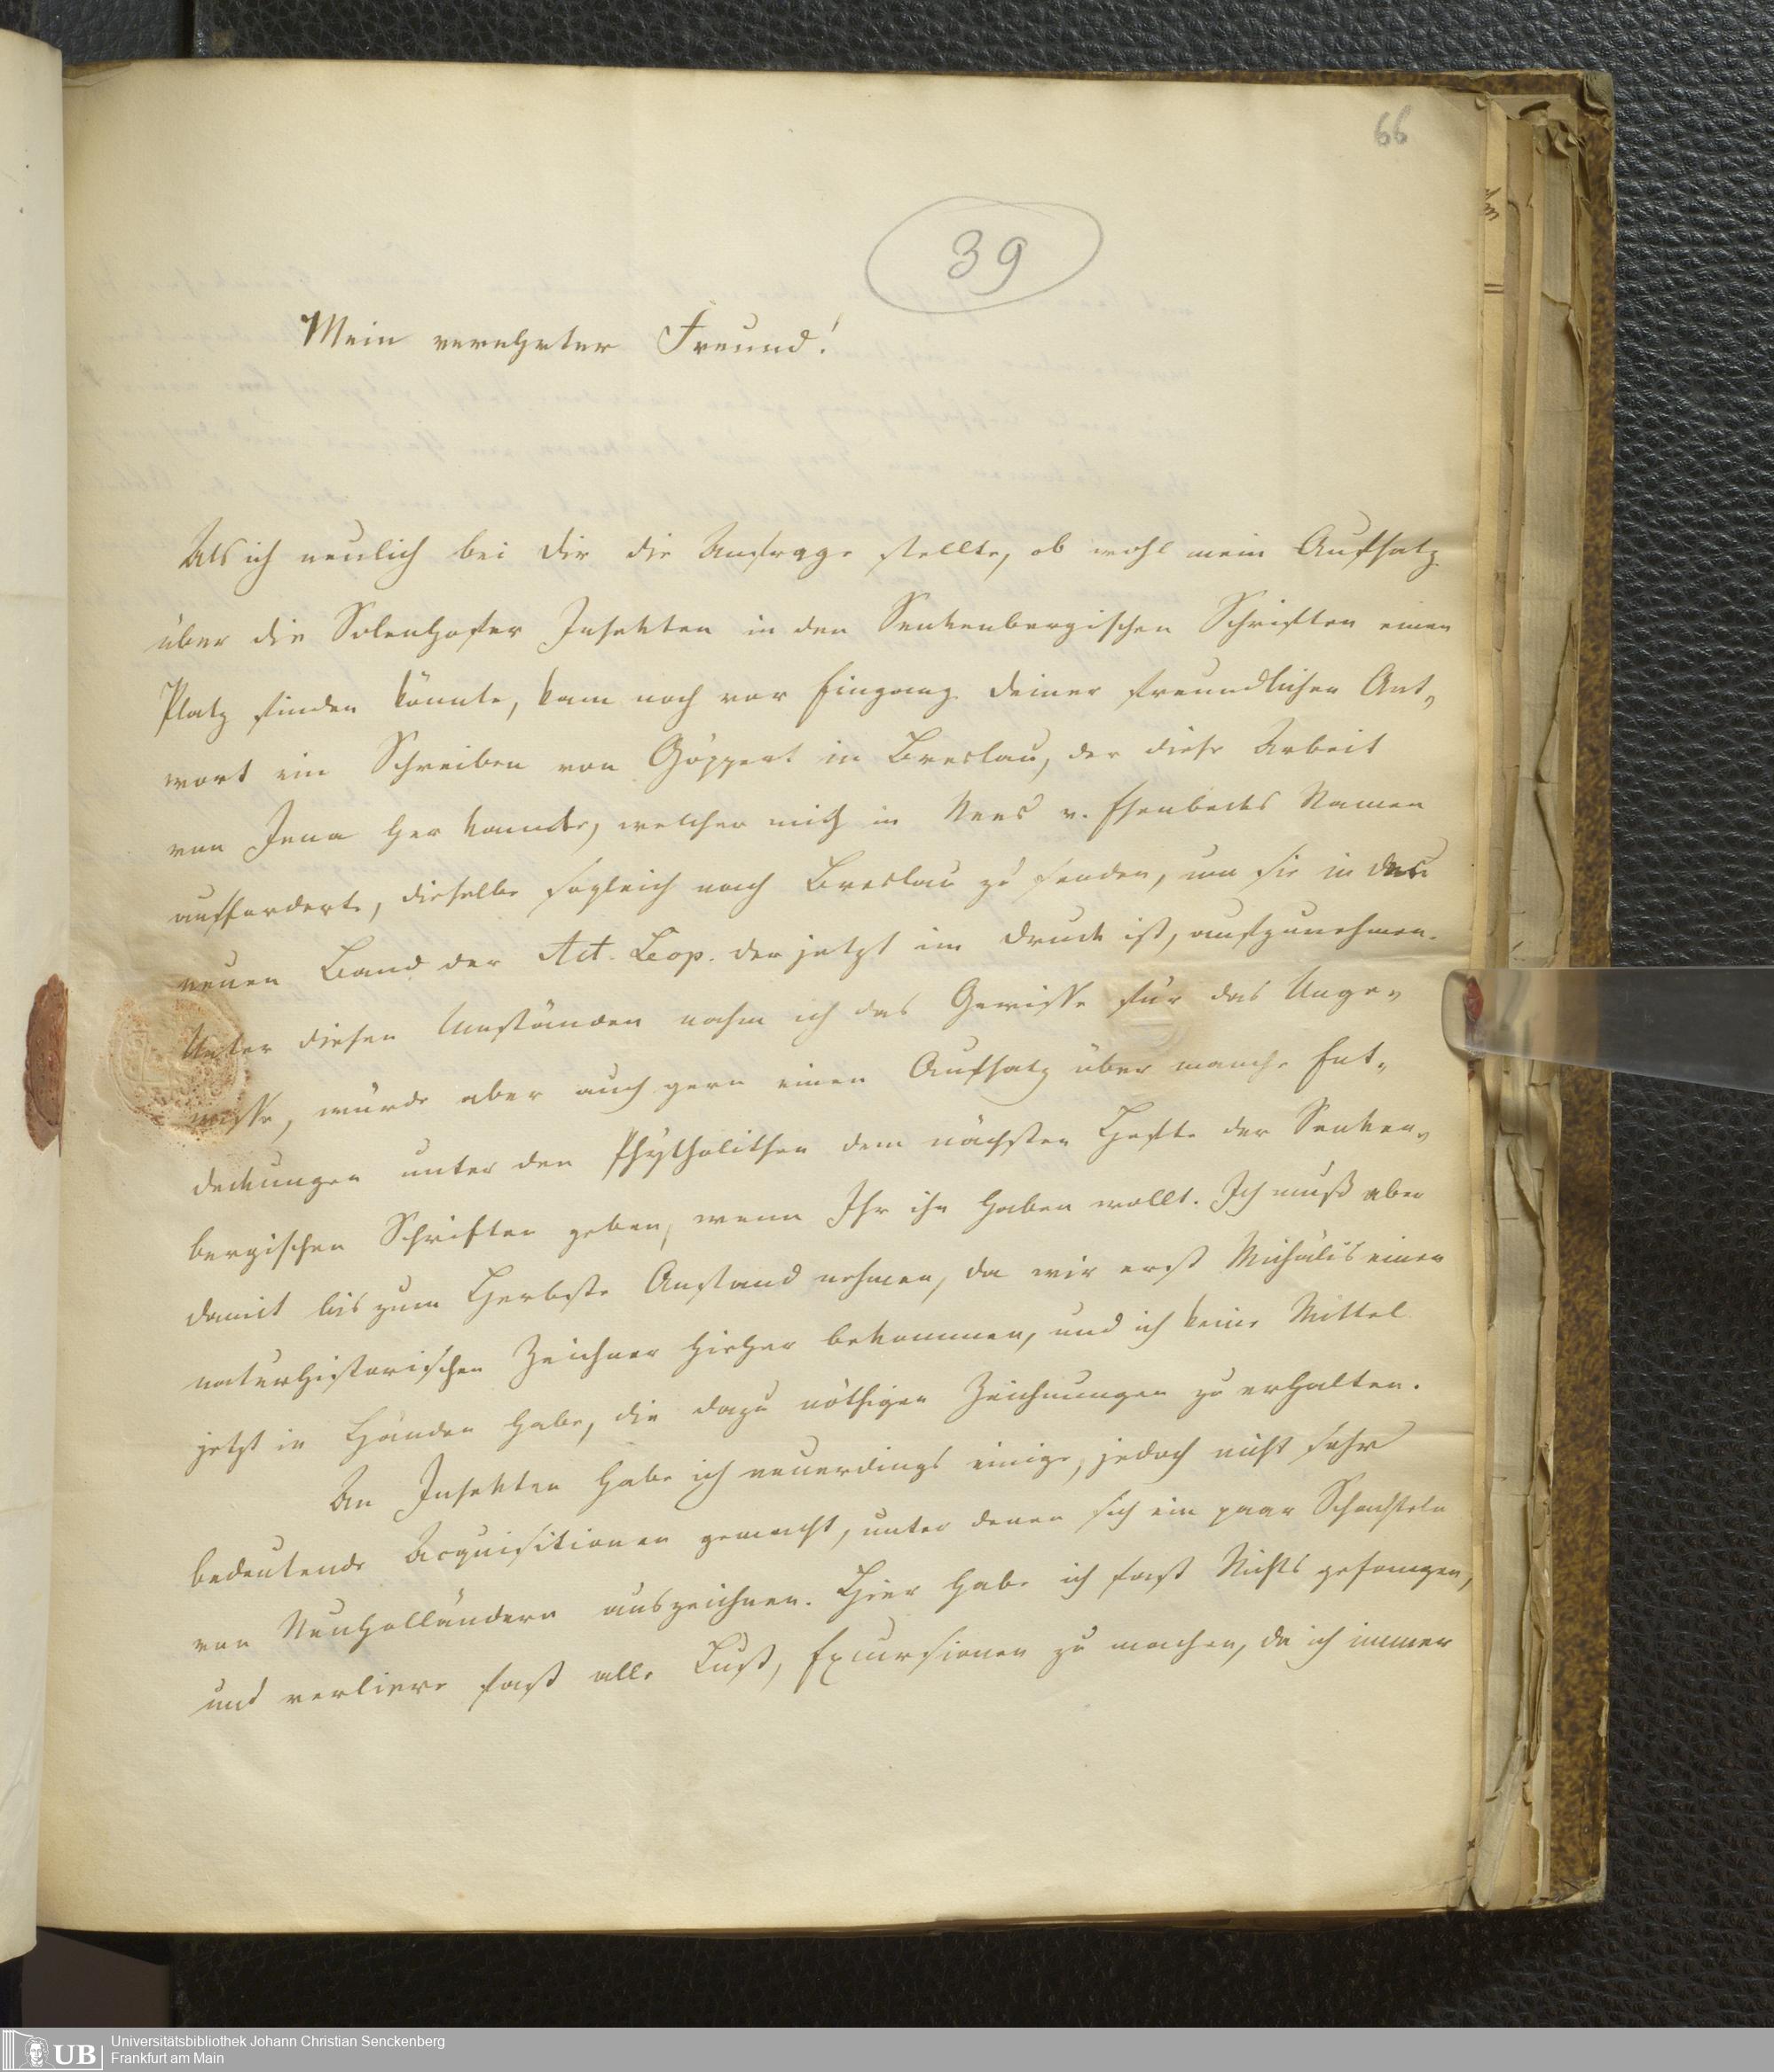 66
39
Mein verehrter Freund!
Als ich neulich bei dir die Anfrage stellte, ob wohl mein Aufsatz
über die Solenhofer Insekten in den Senkenbergischen Schriften einen
Platz finden könnte, kam noch vor Eingang deiner freundlichen Ant-
wort ein Schreiben von Göppert in Breslau, der diese Arbeit
von Jena her kannte, welcher mich in Nees v. Esenbecks Namen
aufforderte, dieselbe sogleich nach Breslau zu senden, um sie in den
neuen Band der Act. Leop. der jetzt im Druck ist, aufzunehmen.
Unter diesen Umständen nahm ich das Gewisse für das Unge-
wisse, würde aber auch gern einen Aufsatz über manche Ent-
deckungen unter den Phytholithen dem nächsten Hefte der Senken-
bergischen Schriften geben, wenn Ihr ihn haben wollt. Ich muß aber
damit bis zum Herbste Anstand nehmen, da wir erst Michälis einen
naturhistorischen Zeichner hieher bekommen, und ich keine Mittel
jetzt in Händen habe, die dazu nöthigen Zeichnungen zu erhalten.
An Insekten habe ich neuerdings einige, jedoch nicht sehr
bedeutende Acquisitionen gemacht, unter denen sich ein paar Schachteln
von Neuholländern auszeichnen. Hier habe ich fast Nichts gefangen,
und verliere fast alle Lust, Excursionen zu machen, da ich immer
UB Universitätsbibliothek Johann Christian Senckenberg
Frankfurt am Main